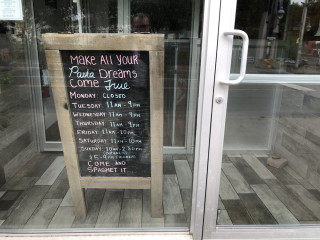 Make All Your
Pasta Dreams
Come True
Monday: Closed
Tuesday: 11am - 9pm
Wednesday: 11am - 9pm
Thursday: 11am - 9pm
Friday: 11am - 10pm
Saturday: 11am - 10pm
Sunday: 10am - 2:30pm
Come and
Spaghet it